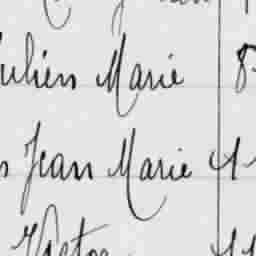 Julien Marie 8
Jean Marie 4
Victor 11